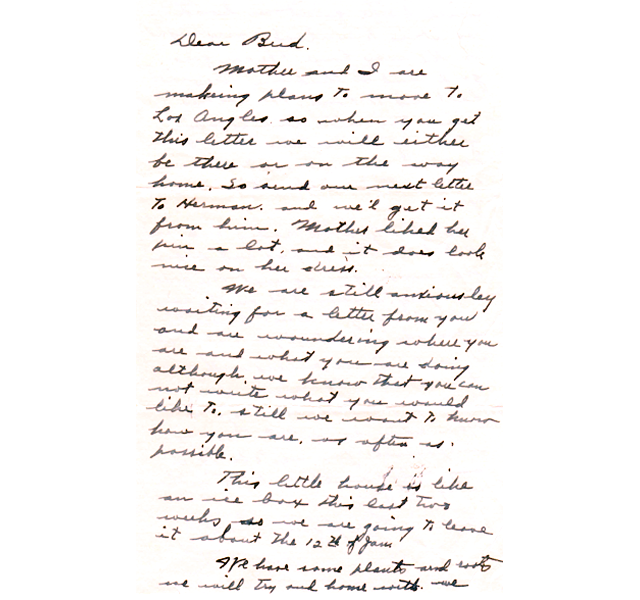 Dear Bud.
Mother and I are
makeing plans to move to
Los Angles. so when you get
this letter we will either
be there or on the way
home. So send our next letter
to Herman. and we'l get it
from him. Mother liked her
pin a lot. and it does look
nice on her dress.
We are still anxiousley
waiting for a letter from you
and are woundering where you
are and what you are doing
although. we know that you can
not write what you would
like to. still we want to know
how you are. as often as
possible.
This little house is like
an ice box this last two
weeks, so we are going to leave
it about the 12th of Jan
We have some plants and roots
we will try and home with. we